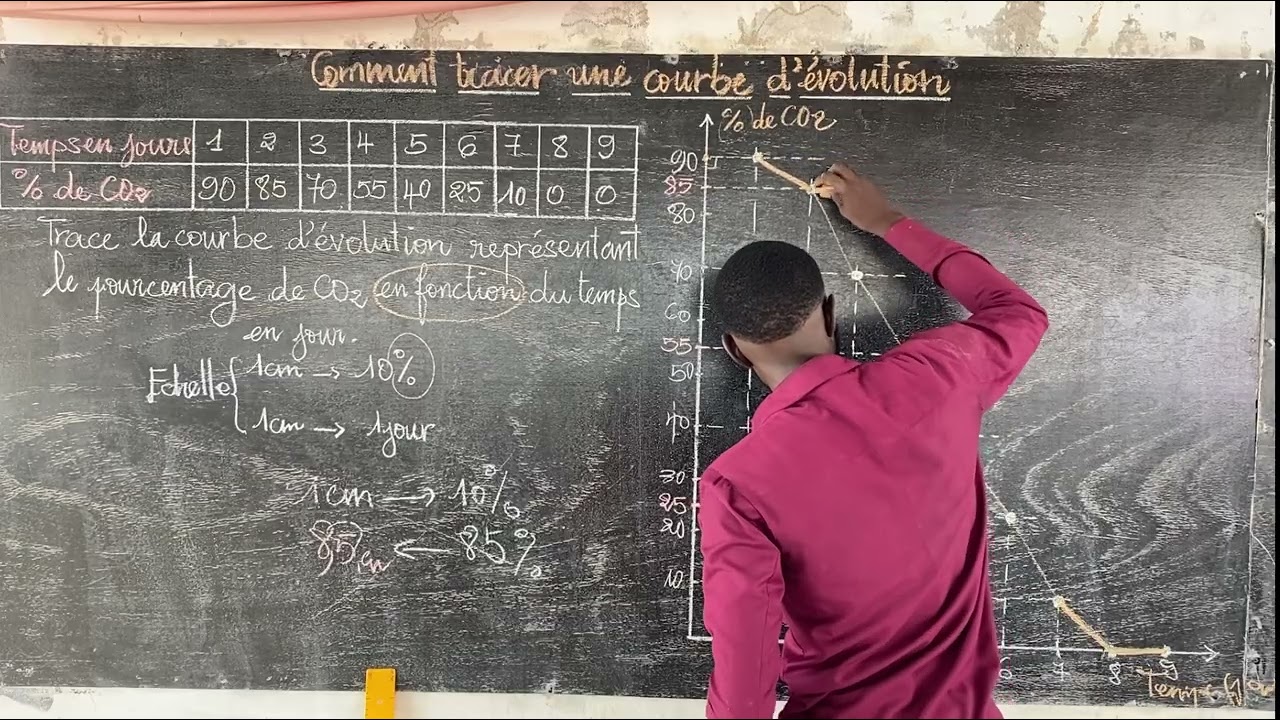 Comment tracer une courbe d'évolution
Temps en jours 1 2 3 4 5 6 7 8 9
% de CO2 90 85 70 55 40 25 10 0 0
Trace la courbe d'évolution représentant
le pourcentage de CO2 en fonction du temps
en jour.
Echelle { 1cm → 10%
1cm → 1jour
1cm → 10%
← 85%
% de CO2
90
85
80
70
60
55
50
40
30
25
20
10
6 7 8 9
Temps